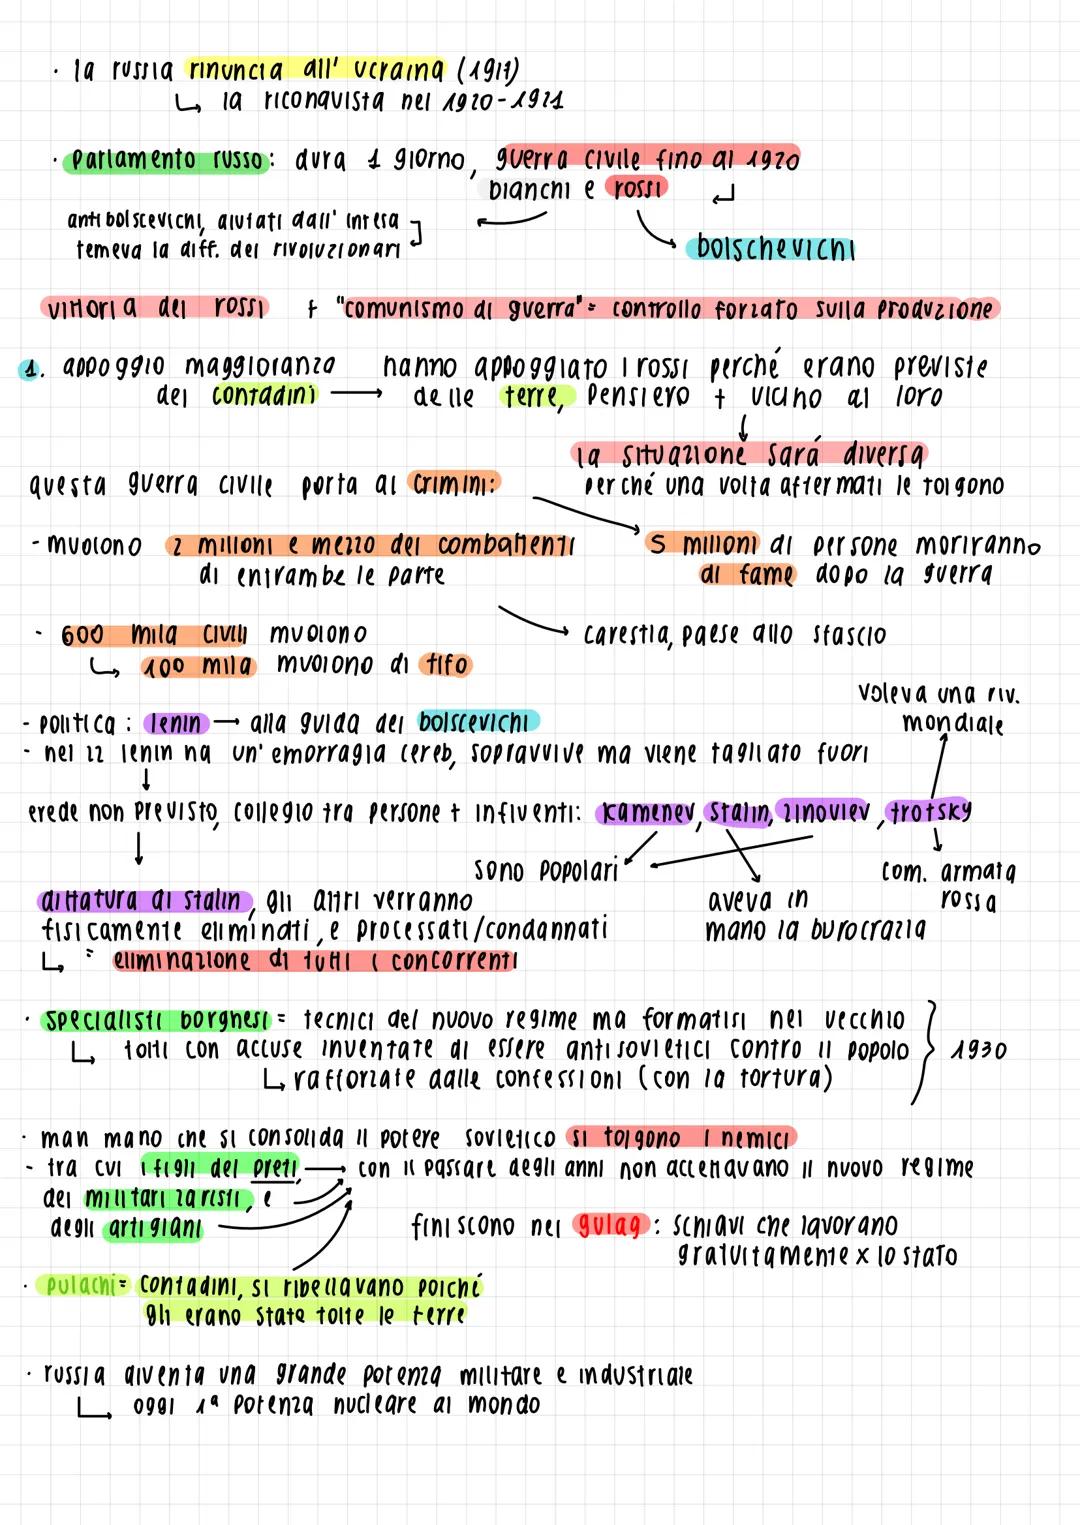 · la russia rinuncia all' ucraina (1917)
↳ la riconquista nel 1920-1921
· parlamento russo: dura 1 giorno, guerra civile fino al 1920
bianchi e rossi ↵
antibolscevichi, aiutati dall' intesa
temeva la diff. dei rivoluzionari
bolschevichi
vittoria dei rossi + "comunismo di guerra" = controllo forzato sulla produzione
1. appoggio maggioranza hanno appoggiato i rossi perché erano previste
dei contadini → delle terre, pensiero + vicino al loro
la situazione sará diversa
questa guerra civile porta ai crimini: perché una volta affermati le tolgono
- muoiono 2 milioni e mezzo dei combattenti 5 milioni di persone moriranno
di entrambe le parte di fame dopo la guerra
- 600 mila civili muoiono → carestia, paese allo sfascio
↳ 100 mila muoiono di tifo
voleva una riv.
- politica: lenin → alla guida dei bolscevichi mondiale
- nel 22 lenin ha un' emorragia cereb, sopravvive ma viene tagliato fuori
erede non previsto, collegio tra persone + influenti: kamenev, stalin, zinoviev, trotsky
sono popolari com. armata
dittatura di stalin, gli altri verranno aveva in rossa
fisicamente eliminati, e processati/condannati mano la burocrazia
↳ = eliminazione di tutti i concorrenti
· specialisti borghesi = tecnici del nuovo regime ma formatisi nel vecchio
↳ tolti con accuse inventate di essere antisovietici contro il popolo } 1930
↳ rafforzate dalle confessioni (con la tortura)
· man mano che si consolida il potere sovietico si tolgono i nemici
- tra cui i figli dei preti, → con il passare degli anni non accettavano il nuovo regime
dei militari zaristi, e
degli artigiani finiscono nei gulag: schiavi che lavorano
gratuitamente x lo stato
· pulachi = contadini, si ribellavano poiché
gli erano state tolte le terre
· russia diventa una grande potenza militare e industriale
↳ oggi 1ª potenza nucleare al mondo